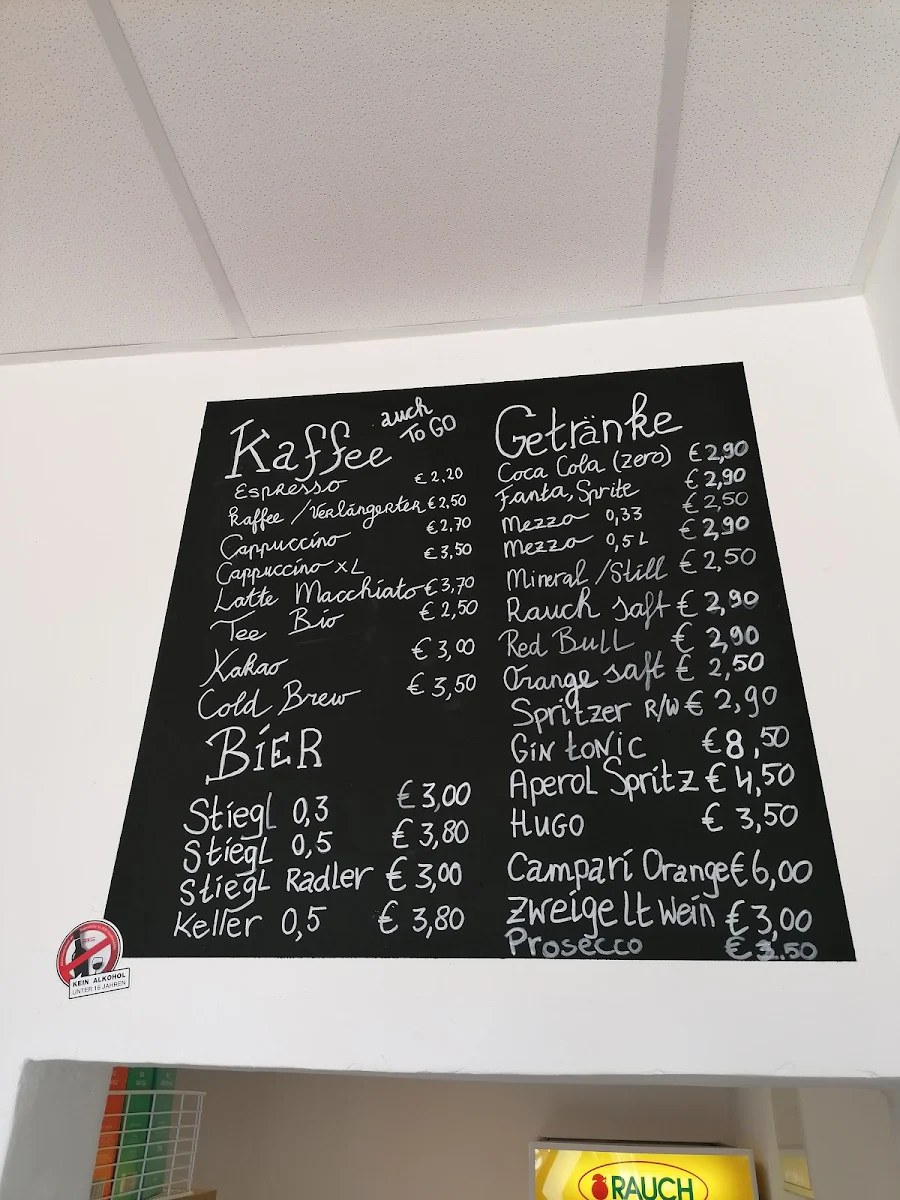 Kaffee auch To GO
Espresso € 2,20
Kaffee / Verlängerter € 2,50
Cappuccino € 2,70
Cappuccino XL € 3,50
Latte Macchiato € 3,70
Tee Bio € 2,50
Kakao € 3,00
Cold Brew € 3,50
BiER
Stiegl 0,3 € 3,00
Stiegl 0,5 € 3,80
Stiegl Radler € 3,00
Keller 0,5 € 3,80
Getränke
Coca Cola (zero) € 2,90
Fanta, Sprite € 2,90
Mezzo 0,33 € 2,50
Mezzo 0,5 L € 2,90
Mineral / Still € 2,50
Rauch saft € 2,90
Red Bull € 2,90
Orange saft € 2,50
Spritzer R/W € 2,90
Gin tonic € 8,50
Aperol Spritz € 4,50
HUGO € 3,50
Campari Orange € 6,00
Zweigelt Wein € 3,00
Prosecco
KEIN ALKOHOL
UNTER 16 JAHREN
RAUCH